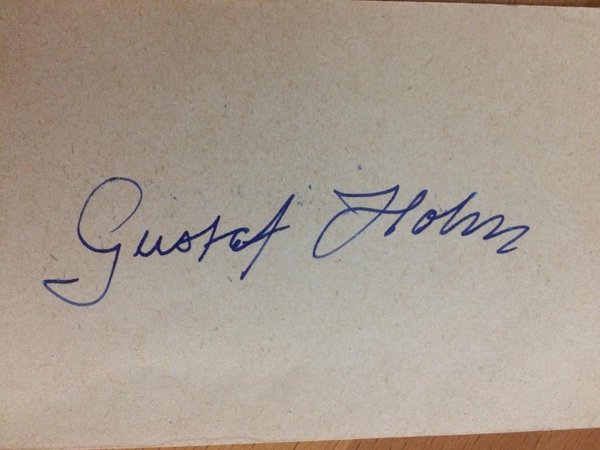 Gustaf Holm